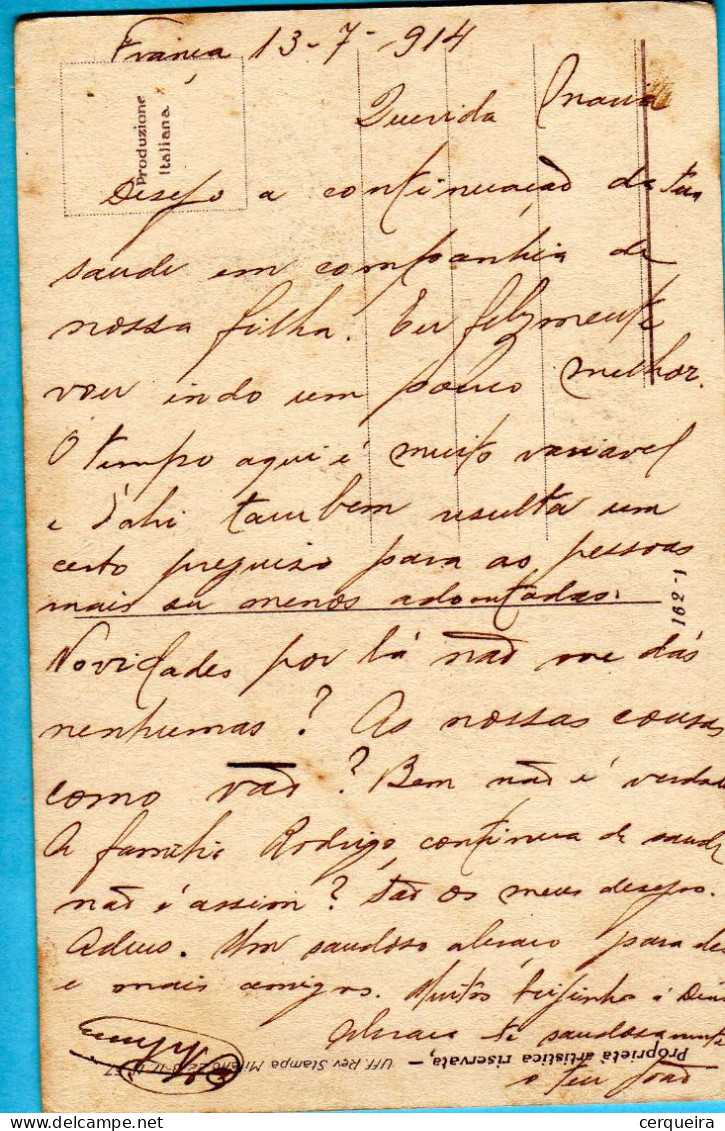 França 13-7-914
Produzione
Italiana.
Querida Maria
Desejo a continuação da tua
saude em companhia de
nossa filha. Eu felizmente
vou indo um pouco melhor.
O tempo aqui é muito variavel
e d'ahi tambem resulta um
certo para as pessoas
mais ou menos adoentadas.
162-1
Novidades por lá não me dás
nenhumas? As nossas cousas
como vão? Bem não é verdade
A familia Rodrigo continua de saude
não é assim? São os meus desejos.
Adeus. Um saudoso abraço para
e mais amigos. Muitos beijinhos á
Abraça-te saudosamente
o teu João
Proprietà artistica riservata. —
Uff. Rev. Stampa Milano
cerqueira